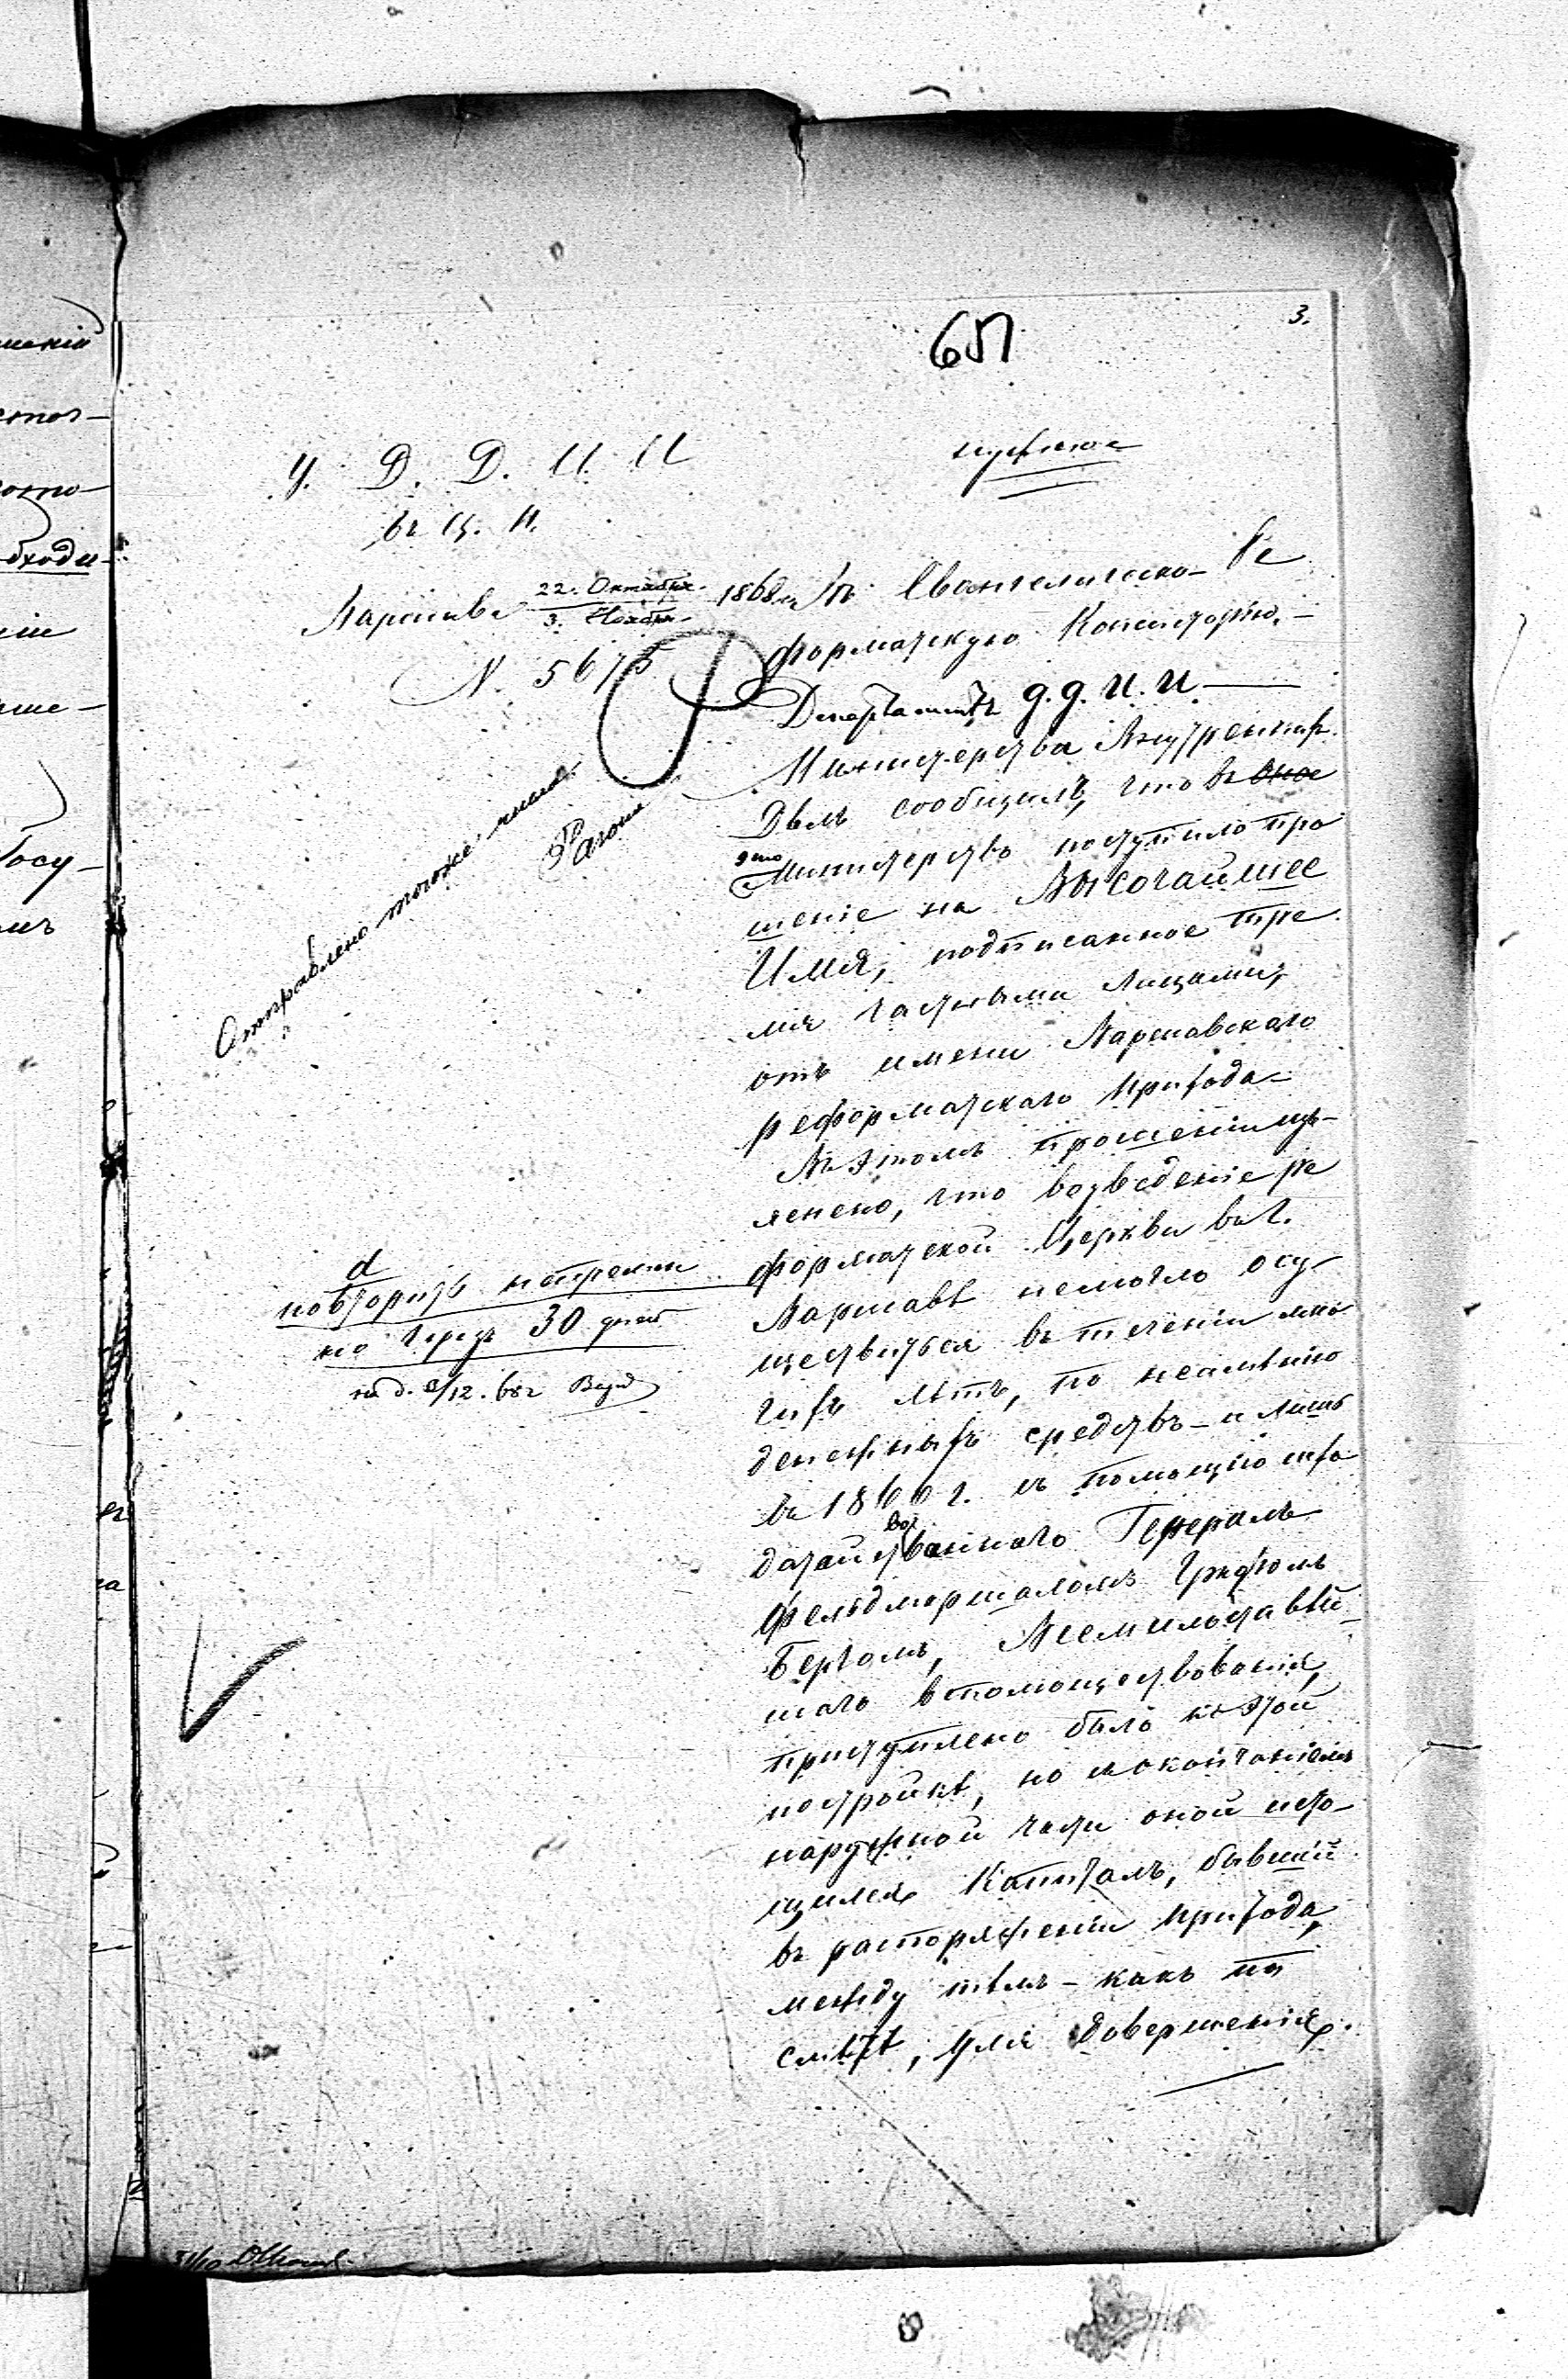 3.
65
нужное
У. Д. Д. И. И
въ Ц. П.
Варшава 22. Октября / 3. Ноября 1868 г.
N. 5675
Отправлено тогоже числа
въ Евангелическо-Ре
форматскую Консисторію.-
Департаментъ Д. Д. И. И.
Министерства Внутреннихъ
Дѣлъ сообщилъ, что въ оное
это
Министерство поступило про
шеніе на Высочайшее
Имя, подписанное тре
мя частными лицами,
отъ имени Варшавскаго
реформатскаго прихода
Въ этомъ прошеніи изъ-
яснено, что возведеніе ре
форматской Церкви въ г.
Варшавѣ немогло осу-
ществиться въ теченіи мно
гихъ лѣтъ, по неимѣнію
денежныхъ средствъ - и лишь
въ 1866 г. съ помощію исхо
датайствованнаго Генералъ
Фельдмаршаломъ Графомъ
Бергомъ, Всемилостивѣй-
шаго вспомоществованія,
приступлено было къ этой
постройкѣ, но съ окончаніемъ
наружной части оной исто-
щился Капиталъ, бывшій
въ распоряженіи прихода,
между тѣмъ - какъ по
смѣтѣ, для довершенія
повторить непремѣн
но чрезъ 30 дней